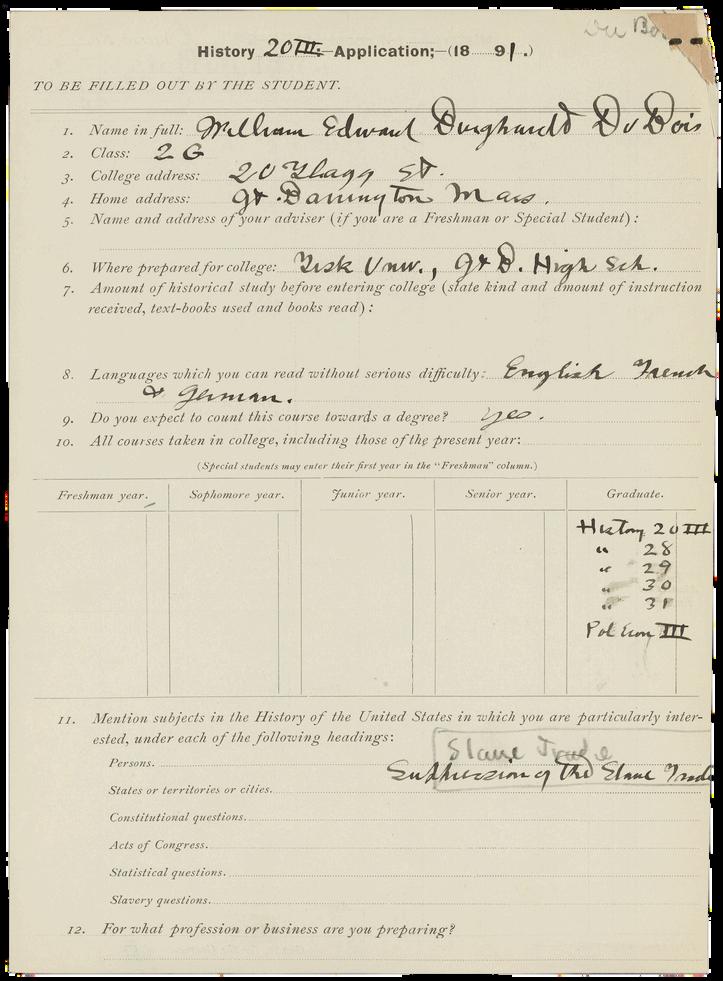 Du Bois
History 20 III.—Application;—(18 91.)
TO BE FILLED OUT BY THE STUDENT.
1. Name in full: William Edward Burghardt Du Bois
2. Class: 2 G
3. College address: 20 Flagg St.
4. Home address: Gt. Barrington Mass.
5. Name and address of your adviser (if you are a Freshman or Special Student):
6. Where prepared for college: Fisk Univ., Gt B. High Sch.
7. Amount of historical study before entering college (state kind and amount of instruction
received, text-books used and books read):
8. Languages which you can read without serious difficulty: English French
& German.
9. Do you expect to count this course towards a degree? Yes.
10. All courses taken in college, including those of the present year:
(Special students may enter their first year in the "Freshman" column.)
Freshman year. Sophomore year. Junior year. Senior year. Graduate.
History 20 III
" 28
" 29
" 30
" 31
Pol Econ III
11. Mention subjects in the History of the United States in which you are particularly inter-
ested, under each of the following headings:
Slave Trade
Persons.
Suppression of the Slave Trade
States or territories or cities.
Constitutional questions.
Acts of Congress.
Statistical questions.
Slavery questions.
12. For what profession or business are you preparing?